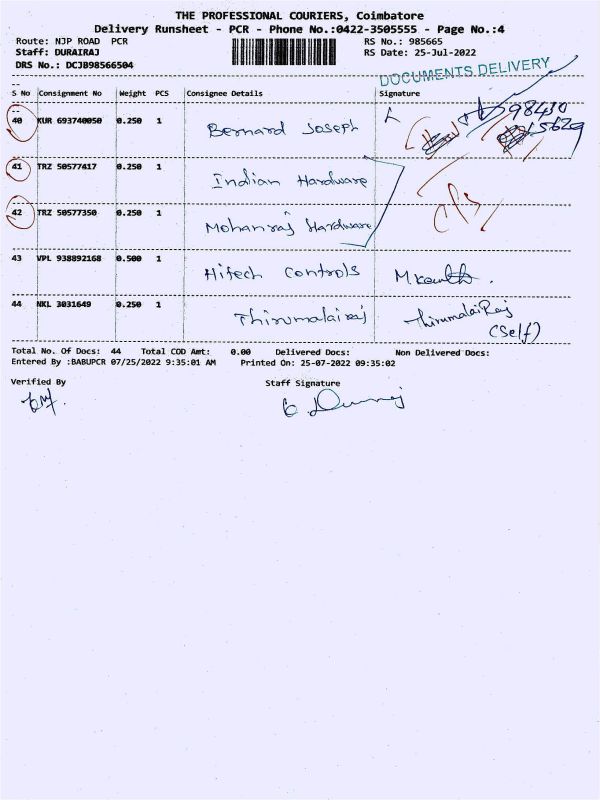 THE PROFESSIONAL COURIERS, Coimbatore
Delivery Runsheet - PCR - Phone No.:0422-3505555 - Page No.:4
Route: NJP ROAD PCR RS No.: 985665
Staff: DURAIRAJ RS Date: 25-Jul-2022
DRS No.: DCJB98566504
DOCUMENTS DELIVERY
S No Consignment No Weight PCS Consignee Details Signature
40 KUR 693740050 0.250 1 Bernard Joseph 98430
15629
41 TRZ 50577417 0.250 1 Indian Hardware
42 TRZ 50577350 0.250 1 Mohanraj Hardware
43 VPL 938892168 0.500 1 Hitech Controls
44 NKL 3031649 0.250 1 Thirumalairaj ThirumalaiRaj
(Self)
Total No. Of Docs: 44 Total COD Amt: 0.00 Delivered Docs: Non Delivered Docs:
Entered By :BABUPCR 07/25/2022 9:35:01 AM Printed On: 25-07-2022 09:35:02
Verified By Staff Signature